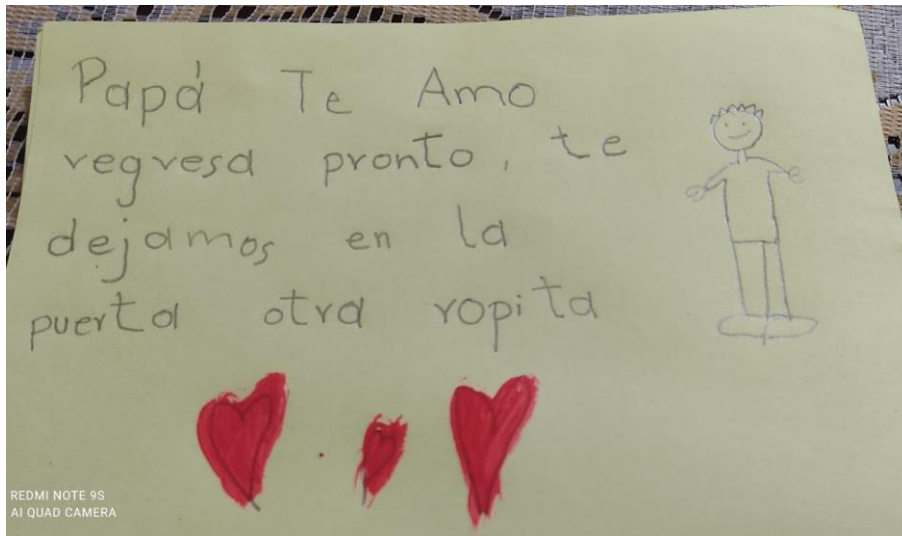 Papá Te Amo
regresa pronto, te
dejamos en la
puerta otra ropita
REDMI NOTE 9S
AI QUAD CAMERA